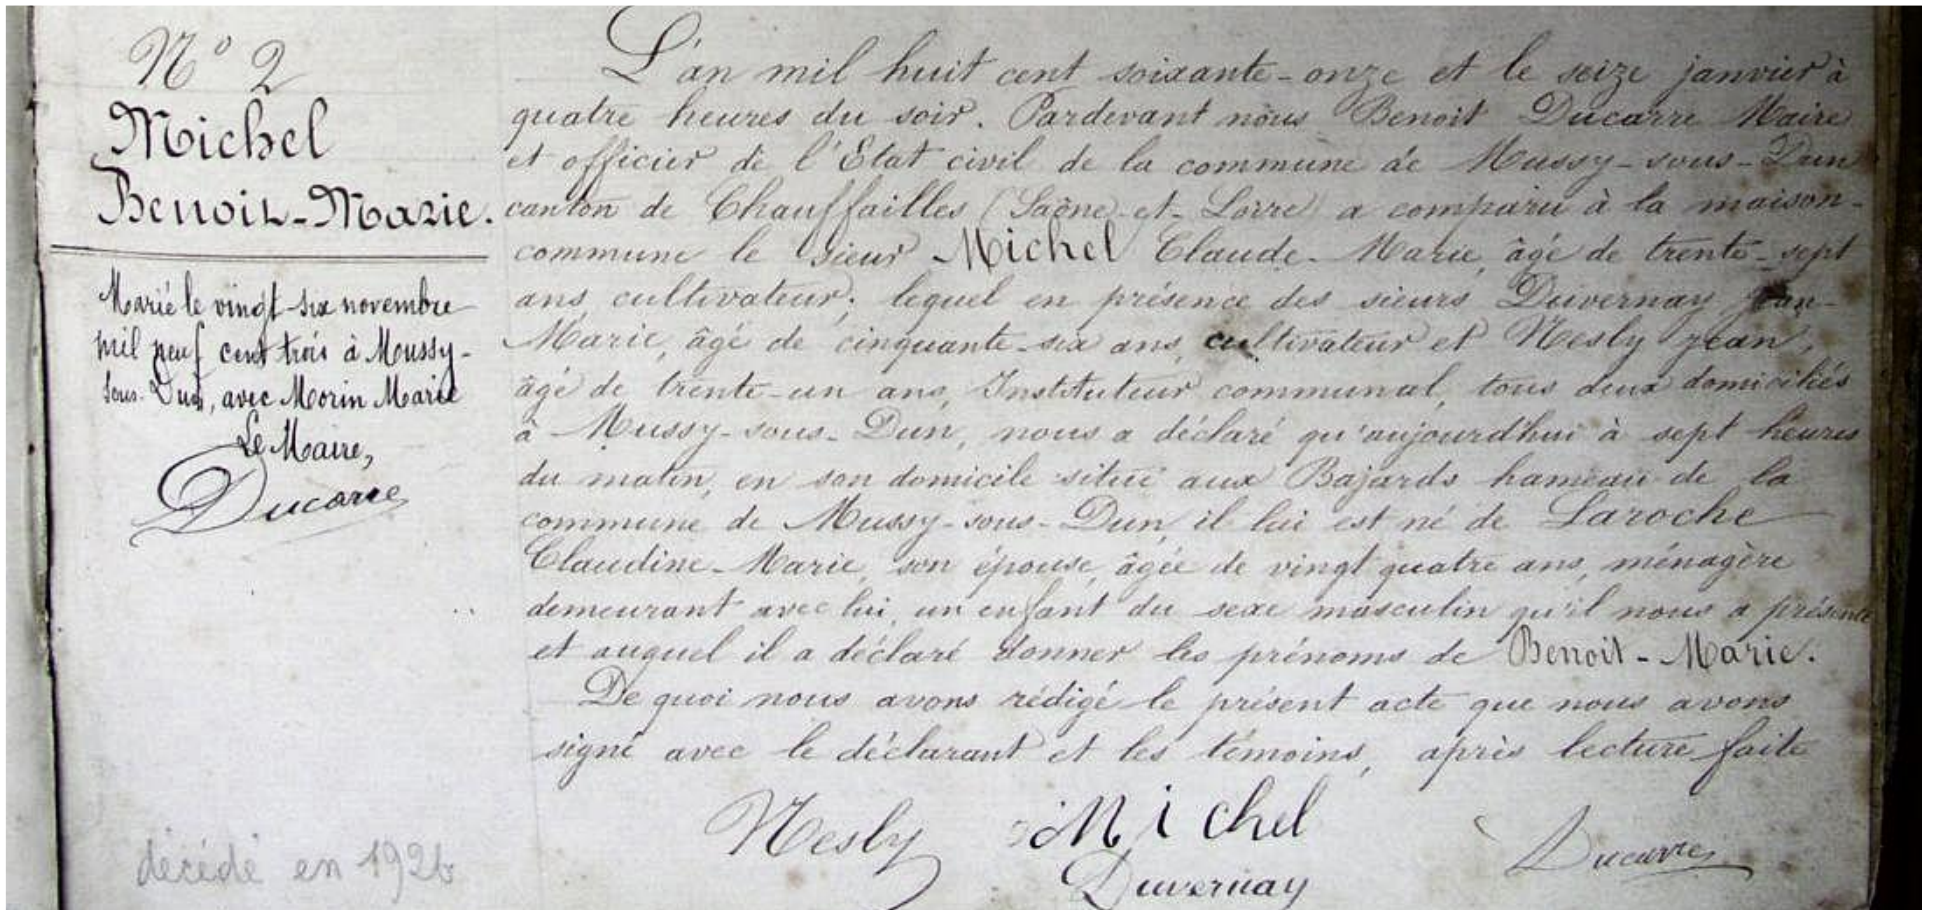 N° 2
Michel
Benoit-Marie.
Marié le vingt-six novembre
mil neuf cent trois à Mussy-
sous-Dun, avec Morin Marie
Le Maire,
Ducarre
décédé en 1926
L'an mil huit cent soixante-onze et le seize janvier à
quatre heures du soir. Pardevant nous Benoit Ducarre Maire
et officier de l'Etat civil de la commune de Mussy-sous-Dun
canton de Chauffailles (Saône-et-Loire) a comparu à la maison-
commune le sieur Michel Claude-Marie, âgé de trente-sept
ans cultivateur; lequel en présence des sieurs Duvernay Jean-
Marie, âgé de cinquante-six ans, cultivateur et Nesly Jean,
âgé de trente-un ans, Instituteur communal, tous deux domiciliés
à Mussy-sous-Dun, nous a déclaré qu'aujourd'hui à sept heures
du matin, en son domicile situé aux Bajards hameau de la
commune de Mussy-sous-Dun, il lui est né de Laroche
Claudine-Marie, son épouse, âgée de vingt quatre ans, ménagère
demeurant avec lui, un enfant du sexe masculin qu'il nous a présenté
et auquel il a déclaré donner les prénoms de Benoit-Marie.
De quoi nous avons rédigé le présent acte que nous avons
signé avec le déclarant et les témoins, après lecture faite
Nesly Michel Ducarre
Duvernay